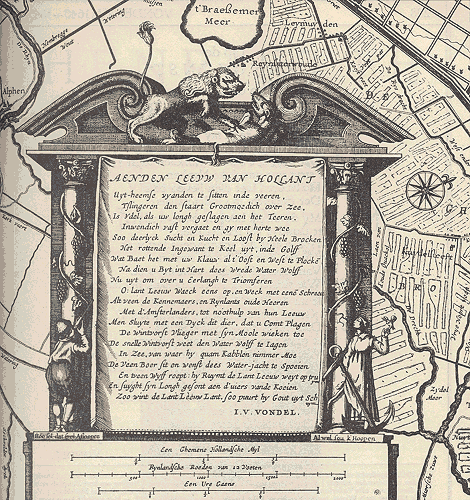 t'Braeßemer
Meer
Leymuyden
Reynsterwoude
Alphen
AENDEN LEEUW VAN HOLLANT
Uyt-heemse vyanden te sitten inde veeren,
Tslingeren den staart Grootmoedich over Zee,
Is Ydel, als uw longh geslagen aen het Teeren,
Inwendich vast vergaet en gy met herte wee
Soo deerlyck Sucht en Kucht en Loost by Heele Brocken
Het rottende Ingewant te Keel uyt, inde Golff
Wat Baet het met uw Klauw al t'Oost en West te Plocken
Na dien u Byt int Hart dees Wrede Water Wolff
Nu uyt om over u Eerlangh te Triomferen
O lant Leeuw Waeck eens op, en Weck met eene Schreeu
Alt veen de Kennemers, en Rynlants oude Heeren
Met d'Amsterlanders, tot noothulp van hun Leeuw
Men Sluyte met een Dyck dit dier, dat u Comt Plagen
De Wintvorst Vlieger met syn Moole wieken toe
De snelle Wintvorst weet den Water Wolf te Iagen
In Zee, van waer hy quam Kabblen nimmer Moe
De Veen Boer sit en wenst dees Water-jacht te Spoeten
En veen Wyff roept: hy Ruymt de Lant Leeuw weyt op
En suyght syn Longh gesont aen d'uiers vande Koeien
Zoo wint de Lant Leeuw Lant, soo puurt hy Gout uyt
I.V. VONDEL.
Zydel
Meer
Een Ghemene Hollandsche Myl
Rynlandsche Roeden van 12 Voeten
500 1000 1500 2000
Een Ure Gaens